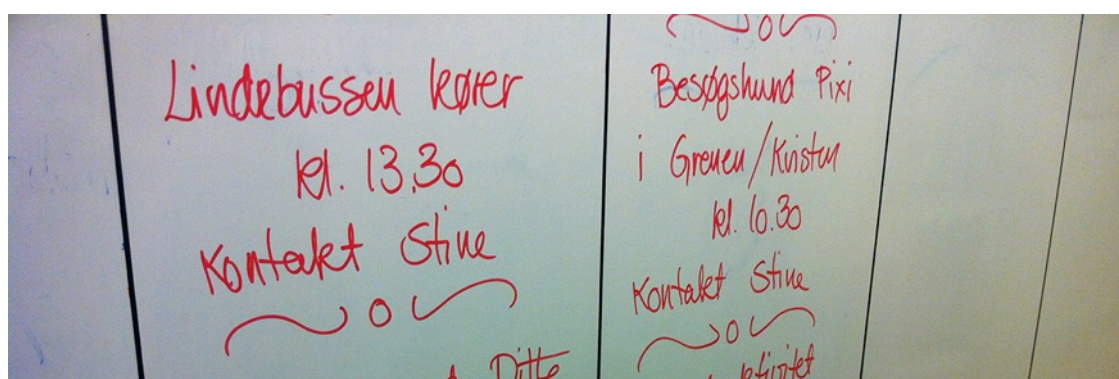 Lindebussen kører
kl. 13.30
Kontakt Stine
Ditte
Besøgshund Pixi
i Grenen/Kvisten
kl. 10.30
Kontakt Stine